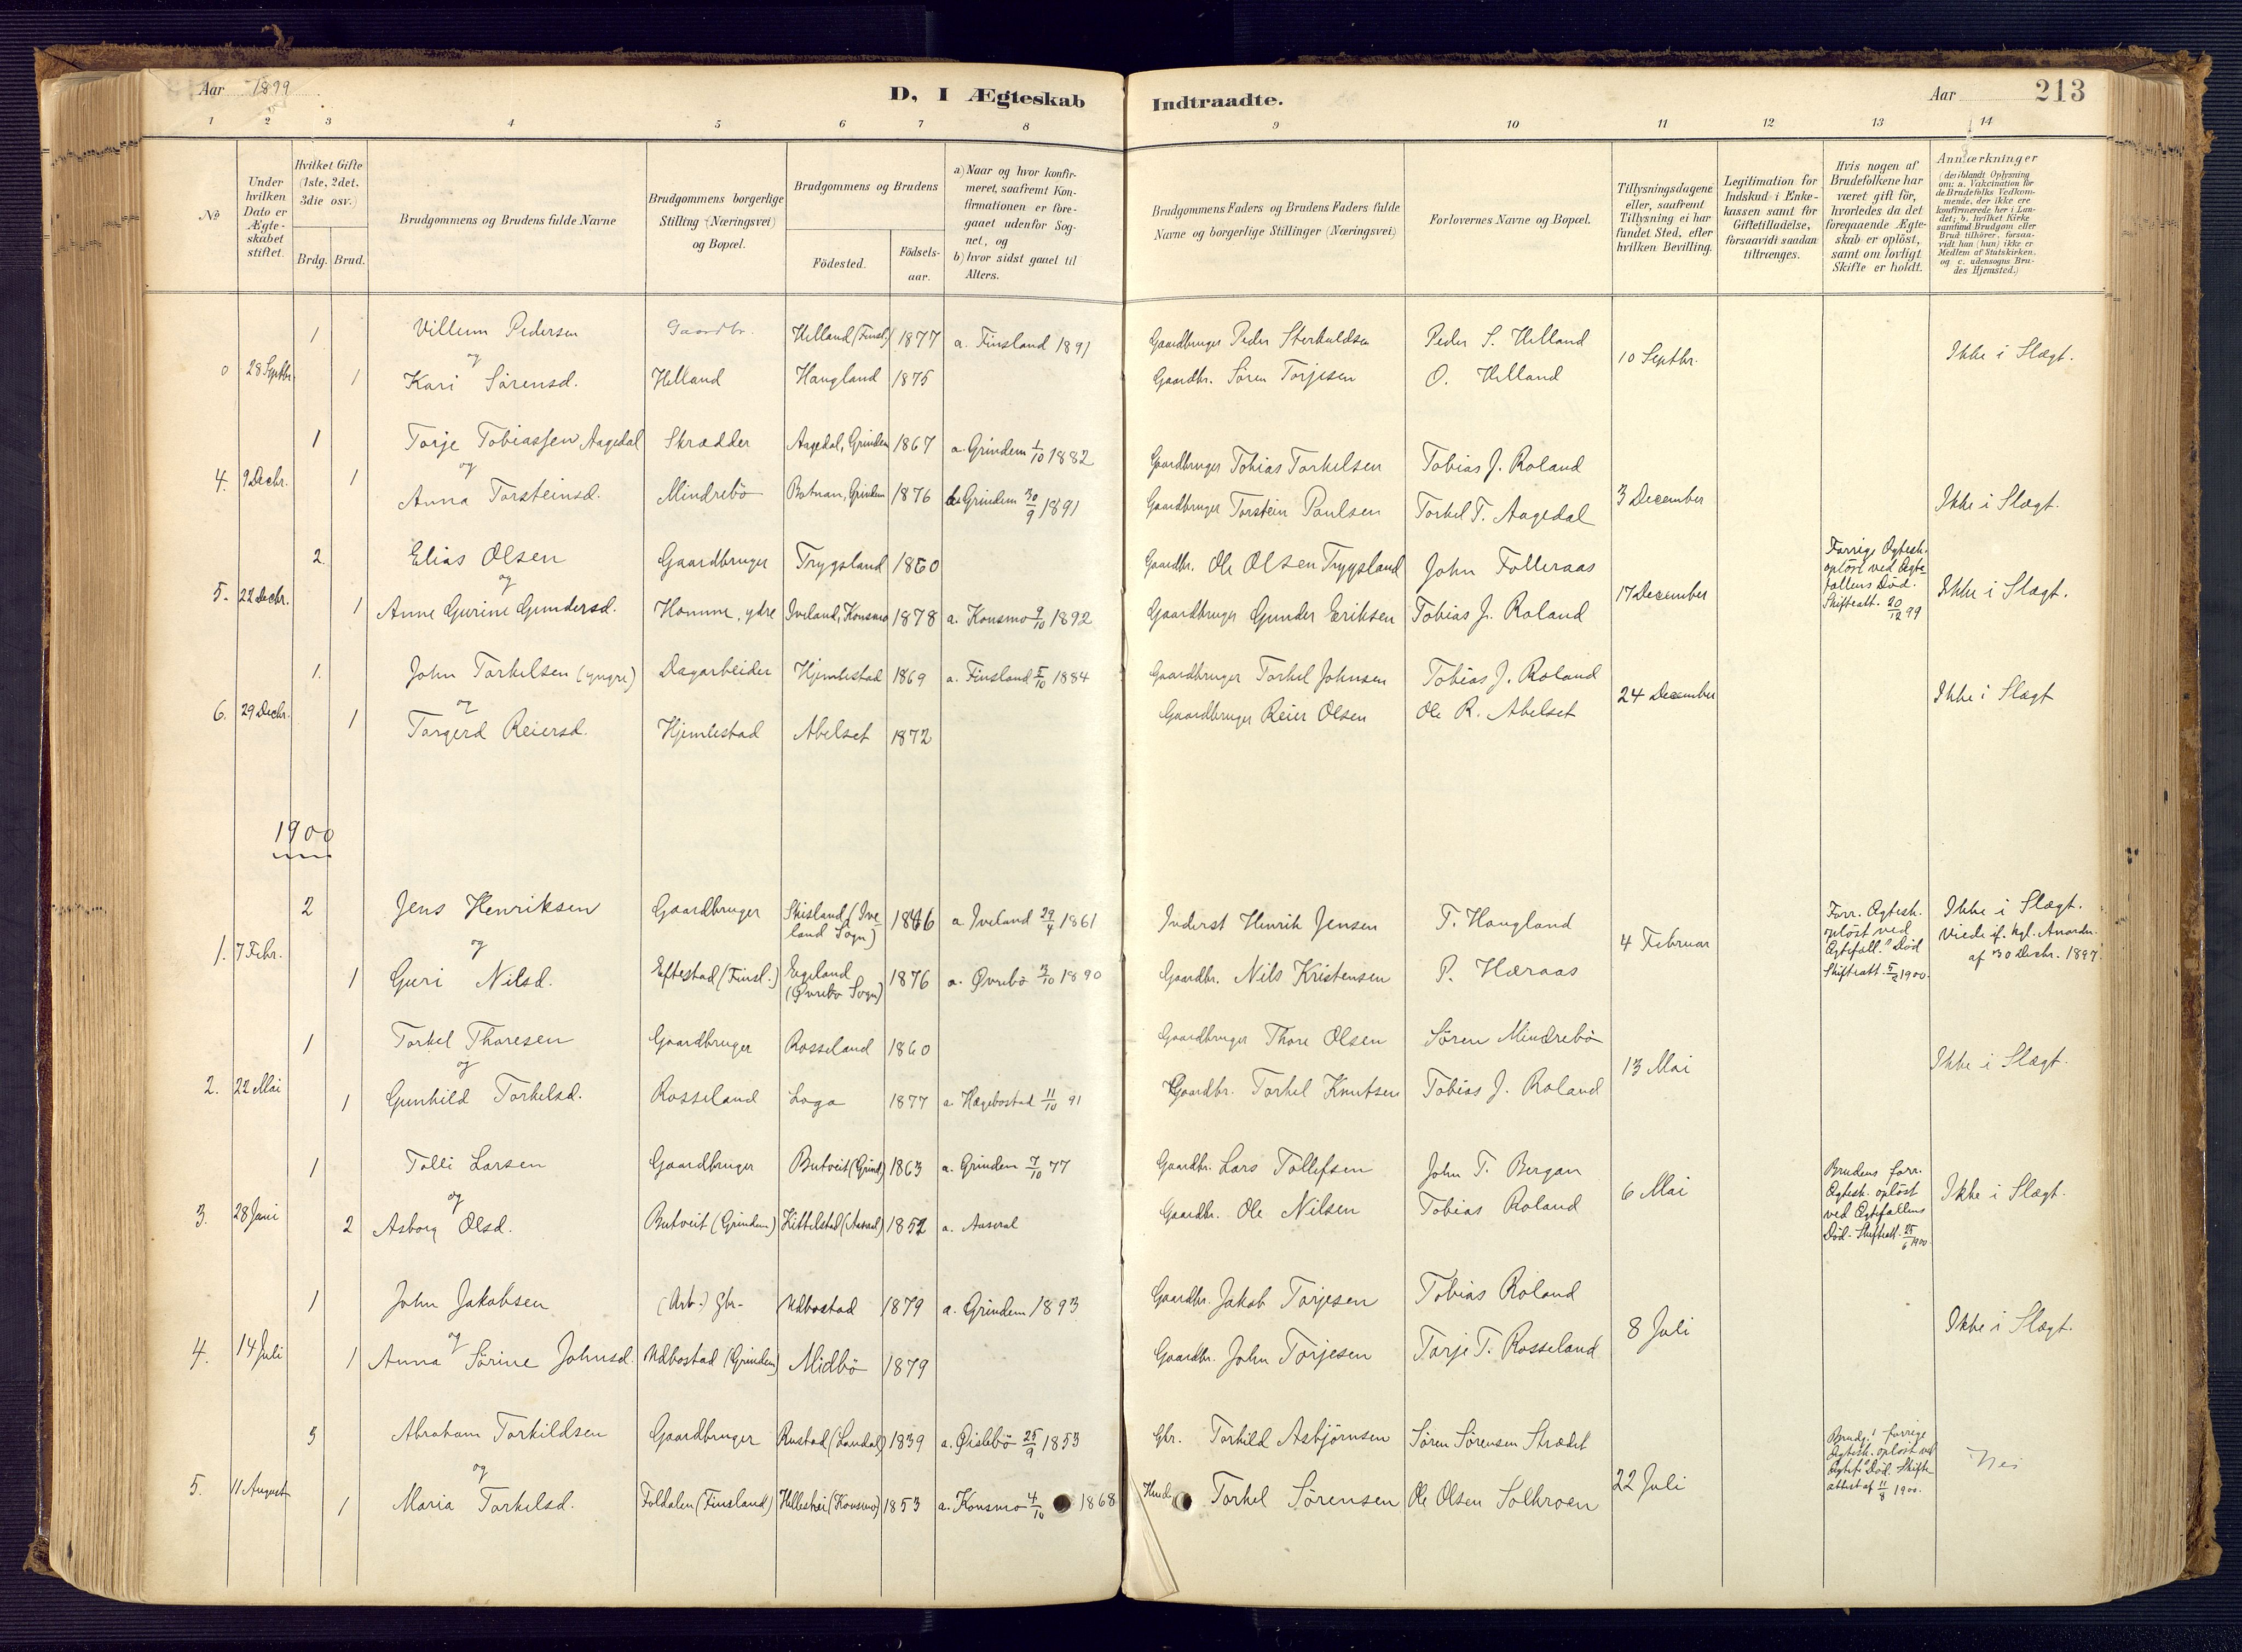 Aar 1899
D, I Ægteskab Indtraadte.
Aar
213
1 2 3 4 5 6 7 8 9 10 11 12 13 14
No
Under hvilken Dato er Ægte-skabet stiftet.
Hvilket Gifte (1ste, 2det, 3die osv.)
Brdg. Brud.
Brudgommens og Brudens fulde Navne
Brudgommens borgerlige Stilling (Næringsvei) og Bopæl.
Brudgommens og Brudens
Födested.
Födsels-aar.
a) Naar og hvor konfir-meret, saafremt Kon-firmationen er fore-gaaet udenfor Sog-net, og
b) hvor sidst gaaet til Alters.
Brudgommens Faders og Brudens Faders fulde Navne og borgerlige Stillinger (Næringsvei)
Forlovernes Navne og Bopæl.
Tillysningsdagene eller, saafremt Tillysning ei har fundet Sted, efter hvilken Bevilling.
Legitimation for Indskud i Enke-kassen samt for Giftetilladelse, forsaavidt saadan tiltrænges.
Hvis nogen af Brudefolkene har været gift för, hvorledes da det foregaaende Ægte-skab er oplöst, samt om lovligt Skifte er holdt.
Anmærkninger (deriblandt Oplysning om: a. Vakcination for de Brudefolks Vedkom-mende, der ikke ere konfirmerede her i Lan-det; b. hvilket Kirke samfund Brudgom eller Brud tilhörer, forsaa-vidt han (hun) ikke er Medlem af Statskirken, og c. udensogns Bru-des Hjemsted.)
1 Villum Pedersen Gaardbr. Helland (Finsl.) 1877 a. Finsland 1891 Gaardbruger Peder Sterkuldsen Peder S. Helland
og
28 Septbr. 1 Kari Sørensd. Helland Haugland 1875 Gaardbr. Søren Torjesen O. Helland 10 Septbr. Ikke i Slægt.
1 Torje Tobiassen Aagedal Skrædder Aagedal, Grindem 1867 a. Grindem 1/10 1882 Gaardbruger Tobias Torkelsen Tobias J. Roland
og
4. 9 Decbr. 1 Anna Torsteinsd. Mindrebö Botnan, Grindem 1876 Grindem 30/9 1891 Gaardbruger Torstein Paulsen Torkel T. Aagedal 3 December Ikke i Slægt.
2. Elias Olsen Gaardbruger Trygsland 1860 Gaardbr. Ole Olsen Trygsland John Folleraas Forrige Ægtesk. oplöst ved Ægte-fællens Död. Skifteatt. 20/12 99
og
5. 22 Decbr. 1 Anne Gurine Gundersd. Homme, ydre Iveland, Konsmo 1878 a. Konsmo 9/10 1892 Gaardbruger Gunder Eriksen Tobias J. Roland 17 December Ikke i Slægt.
1. John Torkelsen (yngre) Dagarbeider Hjemlestad 1869 a. Finsland 5/10 1884 Gaardbruger Torkel Johnsen Tobias J. Roland
og
6. 29 Decbr. 1 Torgerd Reiersd. Hjemlestad Abelset 1872 Gaardbruger Reier Olsen Ole R. Abelset 24 December Ikke i Slægt
1900
2 Jens Henriksen Gaardbruger Skisland (Ive-land Sogn) 1846 a Iveland 29/4 1861 Inderst Henrik Jensen T. Haugland Forr. Ægtesk. oplöst ved Ægtefæll.s Död Skifteatt. 5/2 1900. Ikke i Slægt. Viede if. kgl. Anordn. af 30 Decbr. 1897.
og
1. 7 Febr. 1 Guri Nilsd. Eftestad (Finsl.) Egeland (Øvrebø Sogn) 1876 a. Øvrebø 3/10 1890 Gaardbr. Nils Kristensen P. Heraas 4 Februar
1 Torkel Thoresen Gaardbruger Rosseland 1860 Gaardbruger Thore Olsen Sören Mindrebö
og
2. 22 Mai 1 Gunhild Torkelsd. Rosseland Loga 1877 a. Hægebostad 11/10 91 Gaardbr. Torkel Knutsen Tobias J. Roland 13 Mai Ikke i Slægt.
1 Tolli Larsen Gaardbruger Butveit (Grind.) 1863 a. Grindem 7/10 77 Gaardbr. Lars Tollefsen John T. Bergan Brudens forr. Ægtesk. oplöst ved Ægtefællens Död. Skifteatt. 25/6 1900.
og
3. 28 Juni 2 Asborg Olsd. Butveit (Grindem) Kittelstad (Aaseral) 1852 a. Aaseral Gaardbr. Ole Nilsen Tobias Roland 6 Mai Ikke i Slægt.
1 John Jakobsen (Arb.) Gbr. Udbostad 1879 a. Grindem 1893 Gaardbr. Jakob Torjesen Tobias Roland
og
4. 14 Juli 1 Anna Sörine Johnsd. Udbostad (Grindem) Midbö 1879 Gaardbr. John Torjesen Torje T. Rosseland 8 Juli Ikke i Slægt.
3 Abraham Torkildsen Gaardbruger Rustad (Laudal) 1839 a. Øislebö 25/9 1853 Gbr. Torkild Asbjörnsen Sören Sörensen Strædet Brudg.s forrige Ægtesk. oplöst ved Ægtef.s Död. Skifte-attest af 11/8 1900. Nei
og
5. 11 August 1 Maria Torkelsd. Foldalen (Finsland) Hellestvei (Konsmo) 1853 a. Konsmo 4/10 1868 Torkel Sörensen Ole Olsen Solkroen 22 Juli